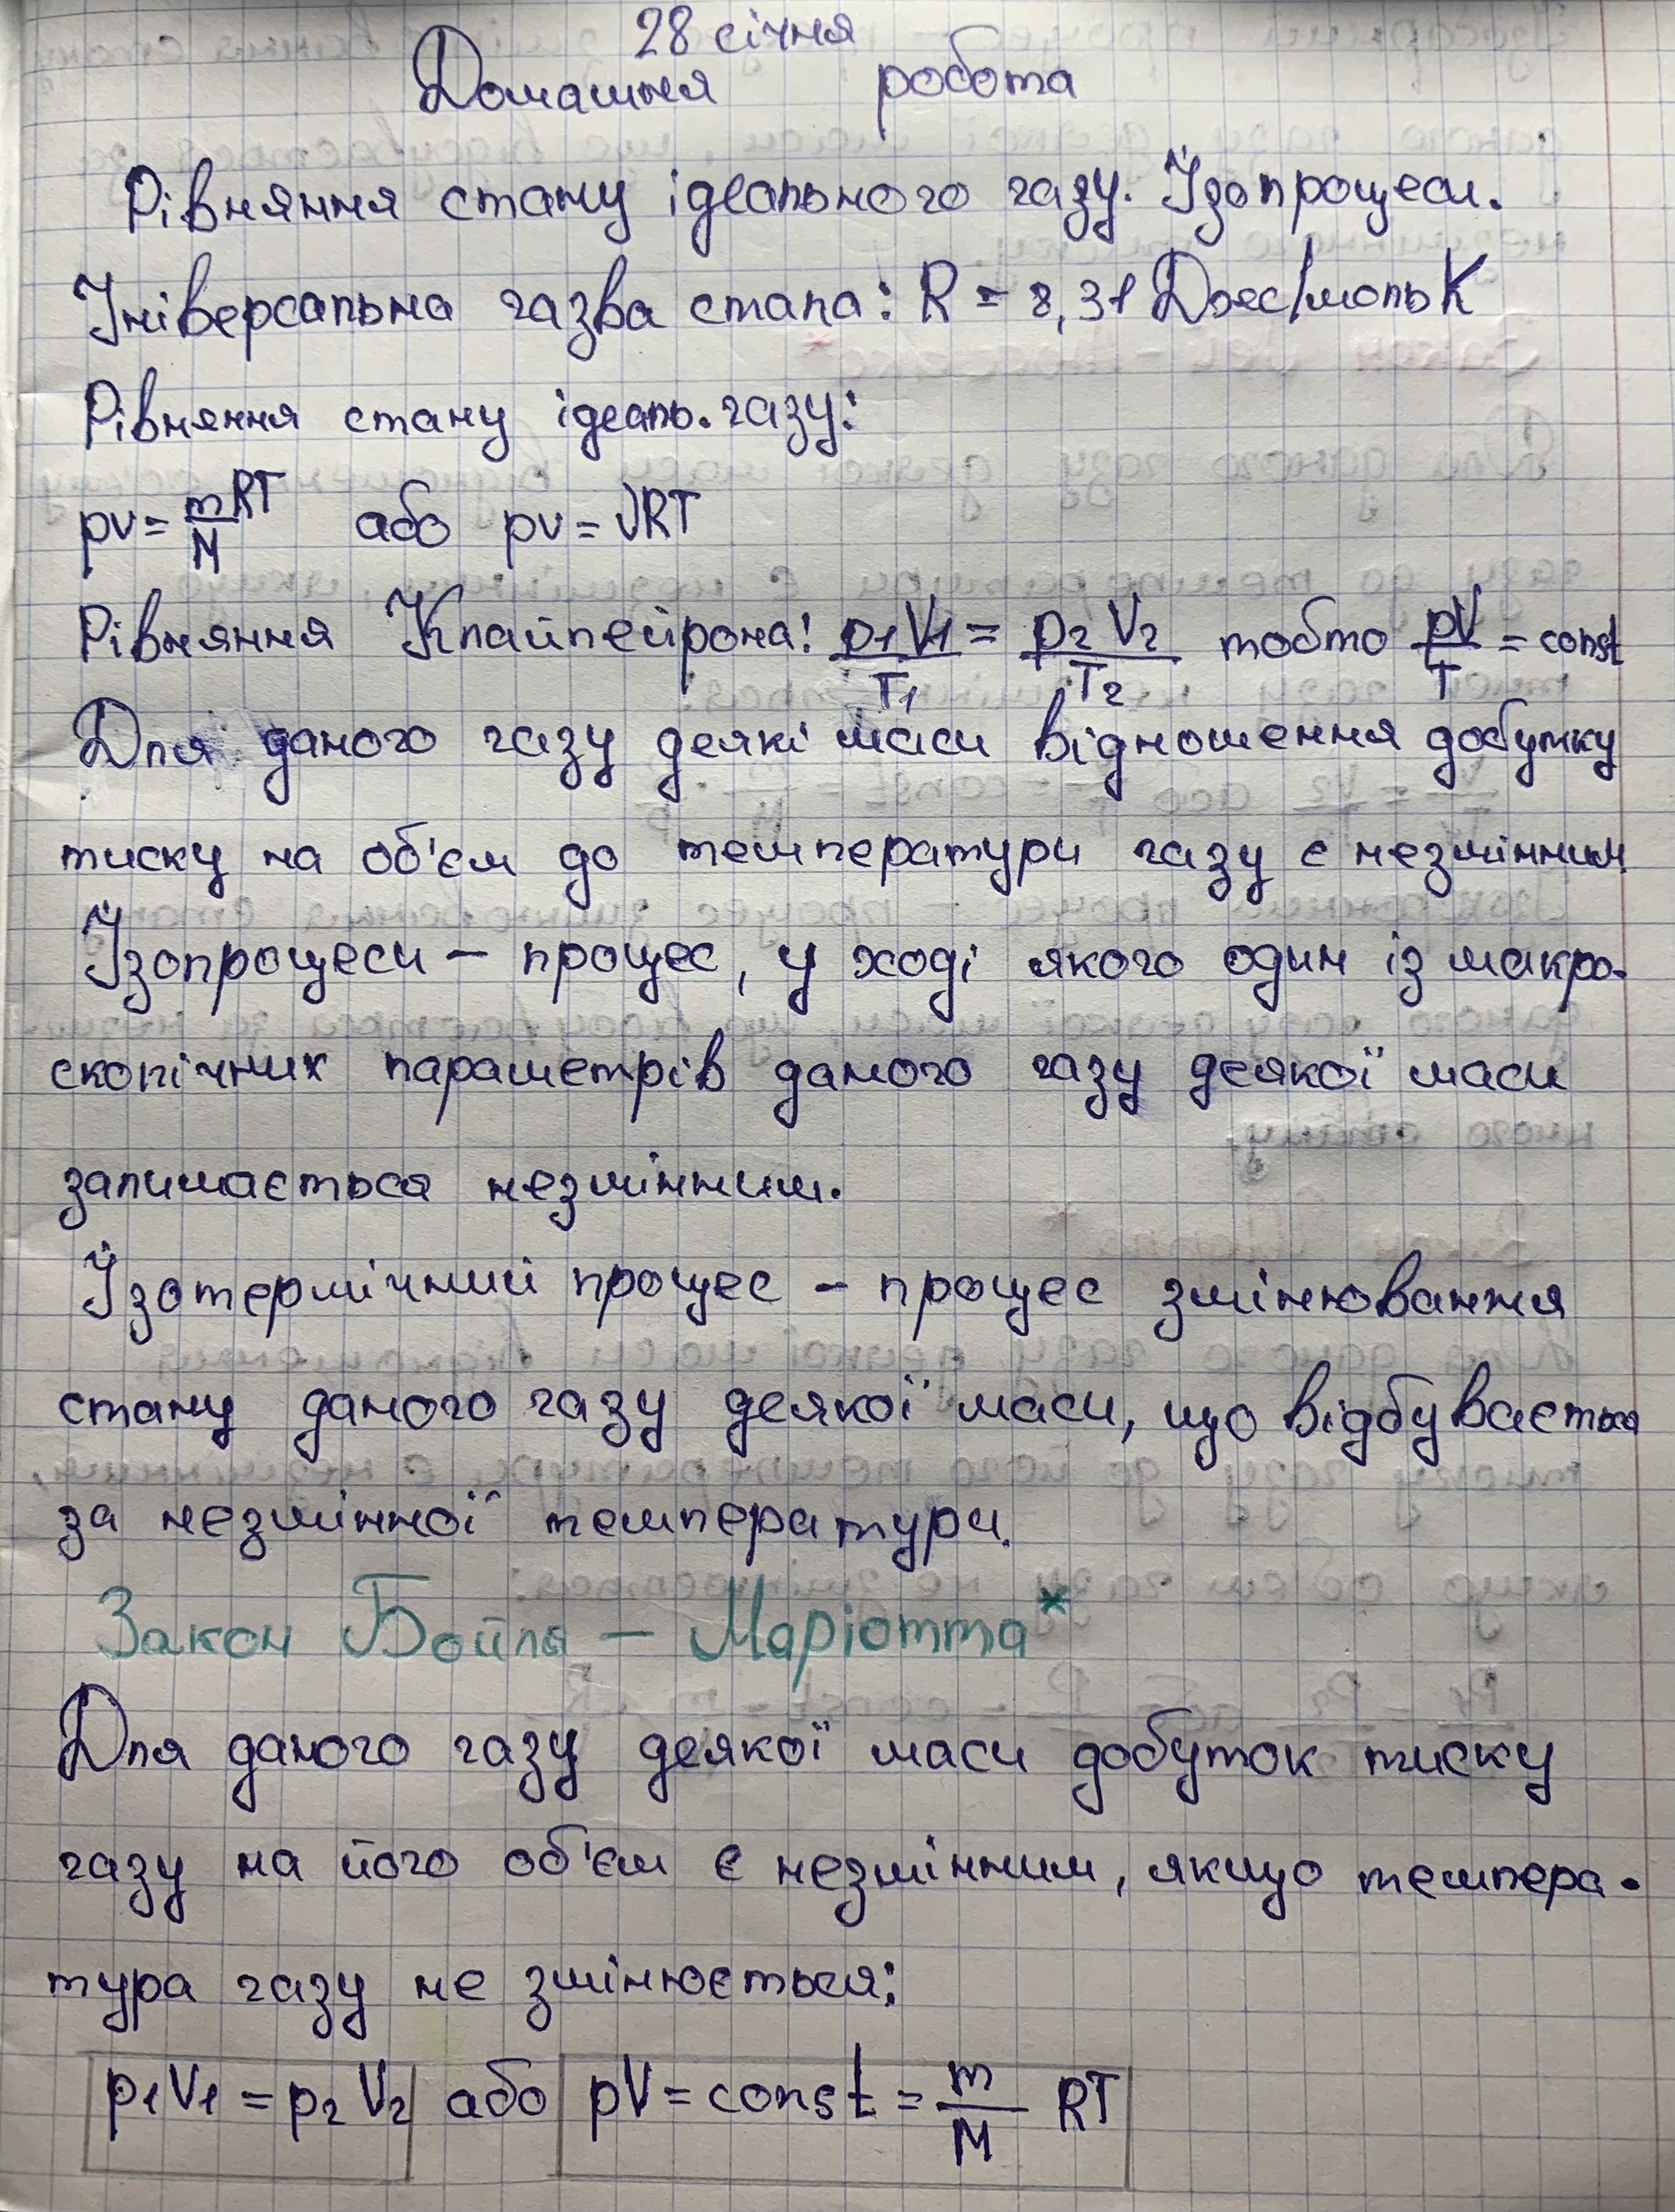 28 січня
Домашня робота
Рівняння стану ідеального газу. Ізопроцеси.
Універсальна газва стала: R = 8,31 Дж/мольК
Рівняння стану ідеаль. газу:
pv = m/M RT або pv = νRT
Рівняння Клайпейрона: p₁V₁/T₁ = p₂V₂/T₂ тобто pV/T = const
Для даного газу деякі маси відношення добутку
тиску на об'єм до температури газу є незмінним.
Ізопроцеси – процес, у ході якого один із макро-
скопічних параметрів даного газу деякої маси
залишається незмінним.
Ізотермічний процес – процес змінювання
стану даного газу деякої маси, що відбувається
за незмінної температури.
Закон Бойля – Маріотта*
Для даного газу деякої маси добуток тиску
газу на його об'єм є незмінним, якщо темпера-
тура газу не змінюється:
p₁V₁ = p₂V₂ або pV = const = m/M RT